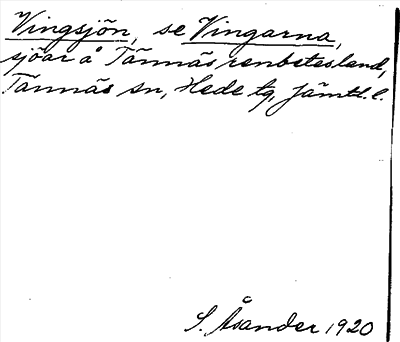 Vingsjön, se Vingarna,
sjöar å Tännäs renbetesland,
Tännäs sn, Hede tg, Jämtl. l.
S. Åsander 1920